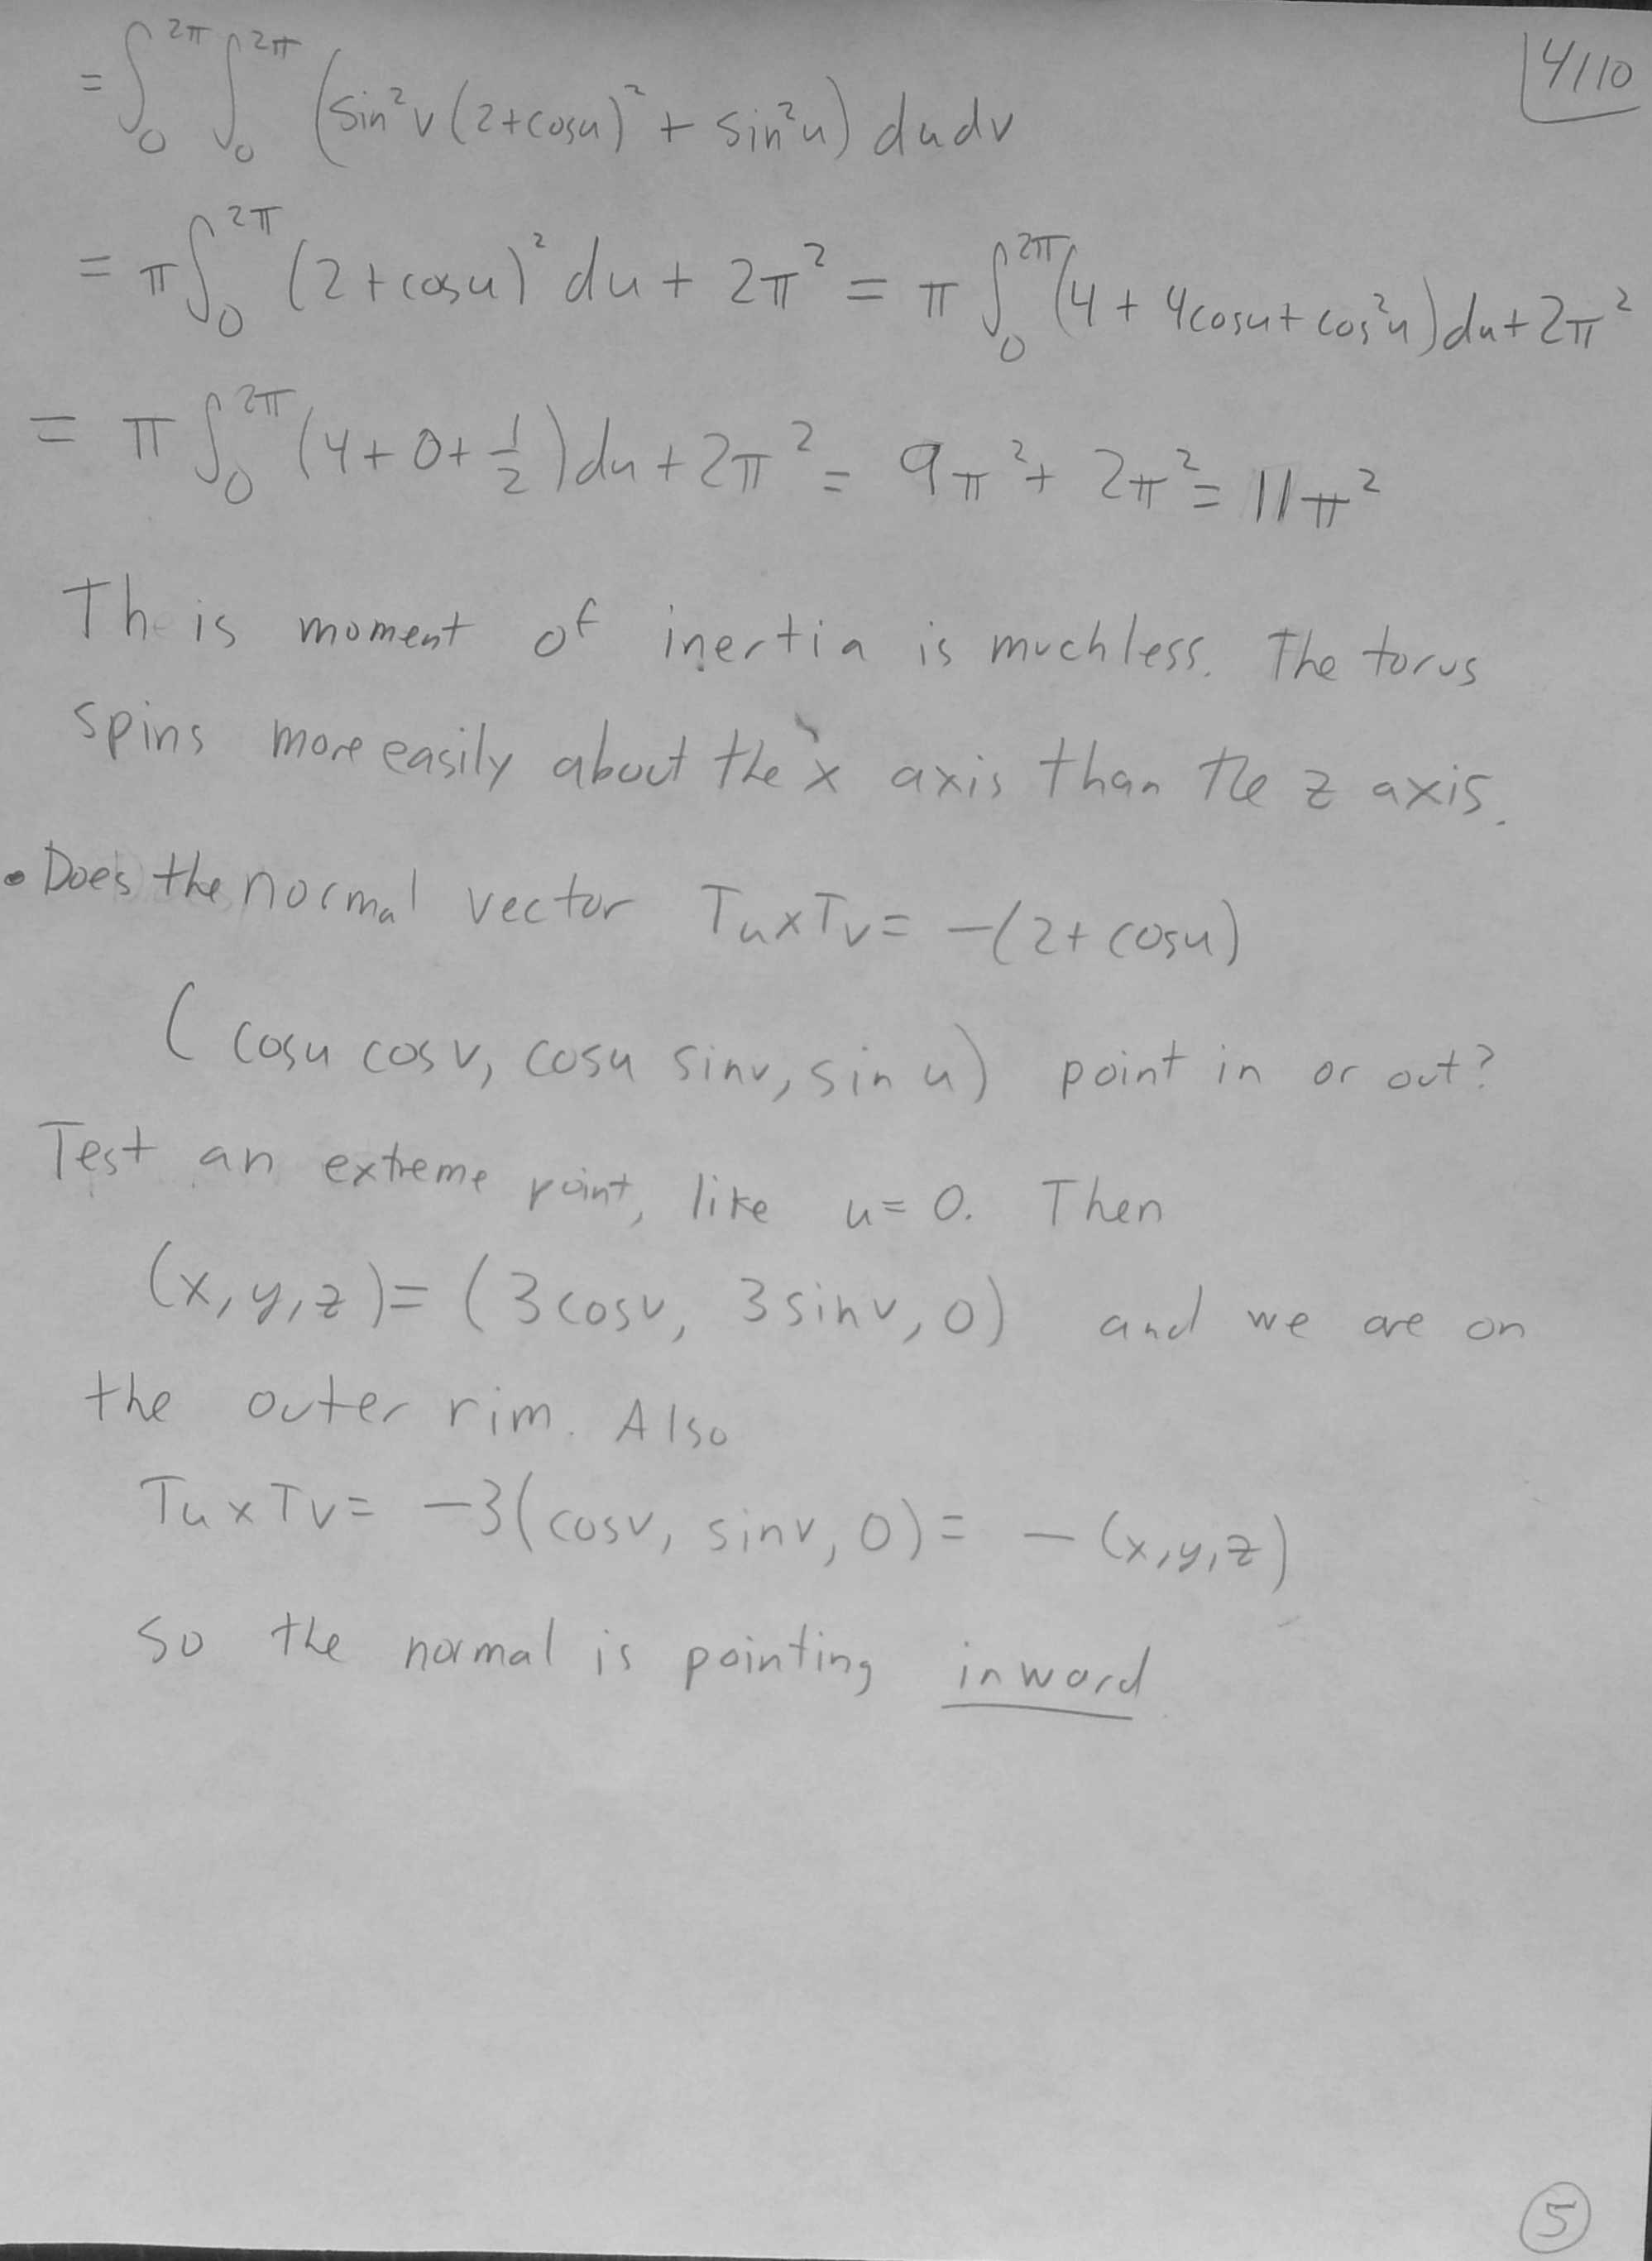 4/10
= ∫₀^2π ∫₀^2π (sin²v (2+cosu)² + sin²u) du dv
= π∫₀^2π (2+cosu)² du + 2π² = π ∫₀^2π (4 + 4cosu + cos²u) du + 2π²
= π ∫₀^2π (4 + 0 + 1/2) du + 2π² = 9π² + 2π² = 11π²
This moment of inertia is much less. The torus
spins more easily about the x axis than the z axis.
• Does the normal vector Tu×Tv = -(2+cosu)
(cosu cosv, cosu sinv, sin u) point in or out?
Test an extreme point, like u=0. Then
(x,y,z) = (3cosv, 3sinv, 0) and we are on
the outer rim. Also
Tu×Tv = -3(cosv, sinv, 0) = -(x,y,z)
so the normal is pointing inward
5